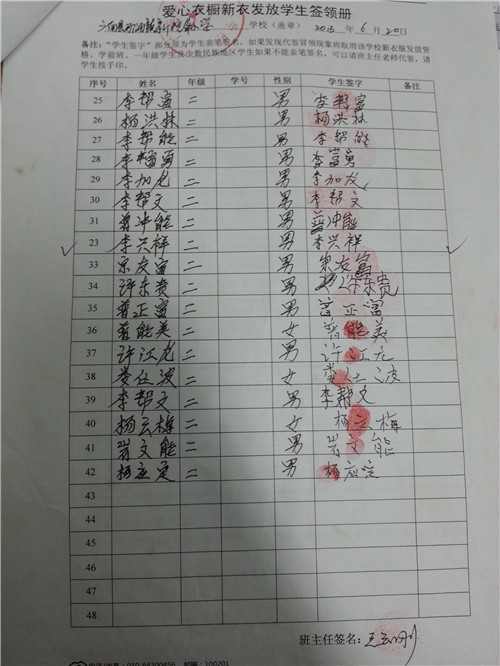 爱心衣橱新衣发放学生签领册
学校（盖章） 2013年6月20日
备注："学生签字"部分须为学生亲笔签名，如果发现代签冒领现象将取消该学校新衣服发放资
格，学前班、一年级学生及少数民族地区学生如果不能亲笔签名，可以请班主任老师代签，请
学生按手印。
序号 姓名 年级 学号 性别 学生签字 备注
25 李帮富 二 男 李帮富
26 杨洪林 二 男 杨洪林
27 李帮能 二 男 李帮能
28 李富勇 二 男 李富勇
29 李加龙 二 男 李加龙
30 李帮文 二 男 李帮文
31 普冲能 二 男 普冲能
23 李兴祥 二 男 李兴祥
33 宗友富 二 男 宗友富
34 许东贵 二 男 许东贵
35 普正富 二 男 普正富
36 普能美 二 女 普能美
37 许江龙 二 男 许江龙
38 娄仕波 二 女 娄仕波
39 李帮文 二 男 李帮文
40 杨云梅 二 女 杨云梅
41 岩文能 二 男 岩文能
42 杨应定 二 男 杨应定
43
44
45
46
47
48
班主任签名：
010-64200456 邮编：100201